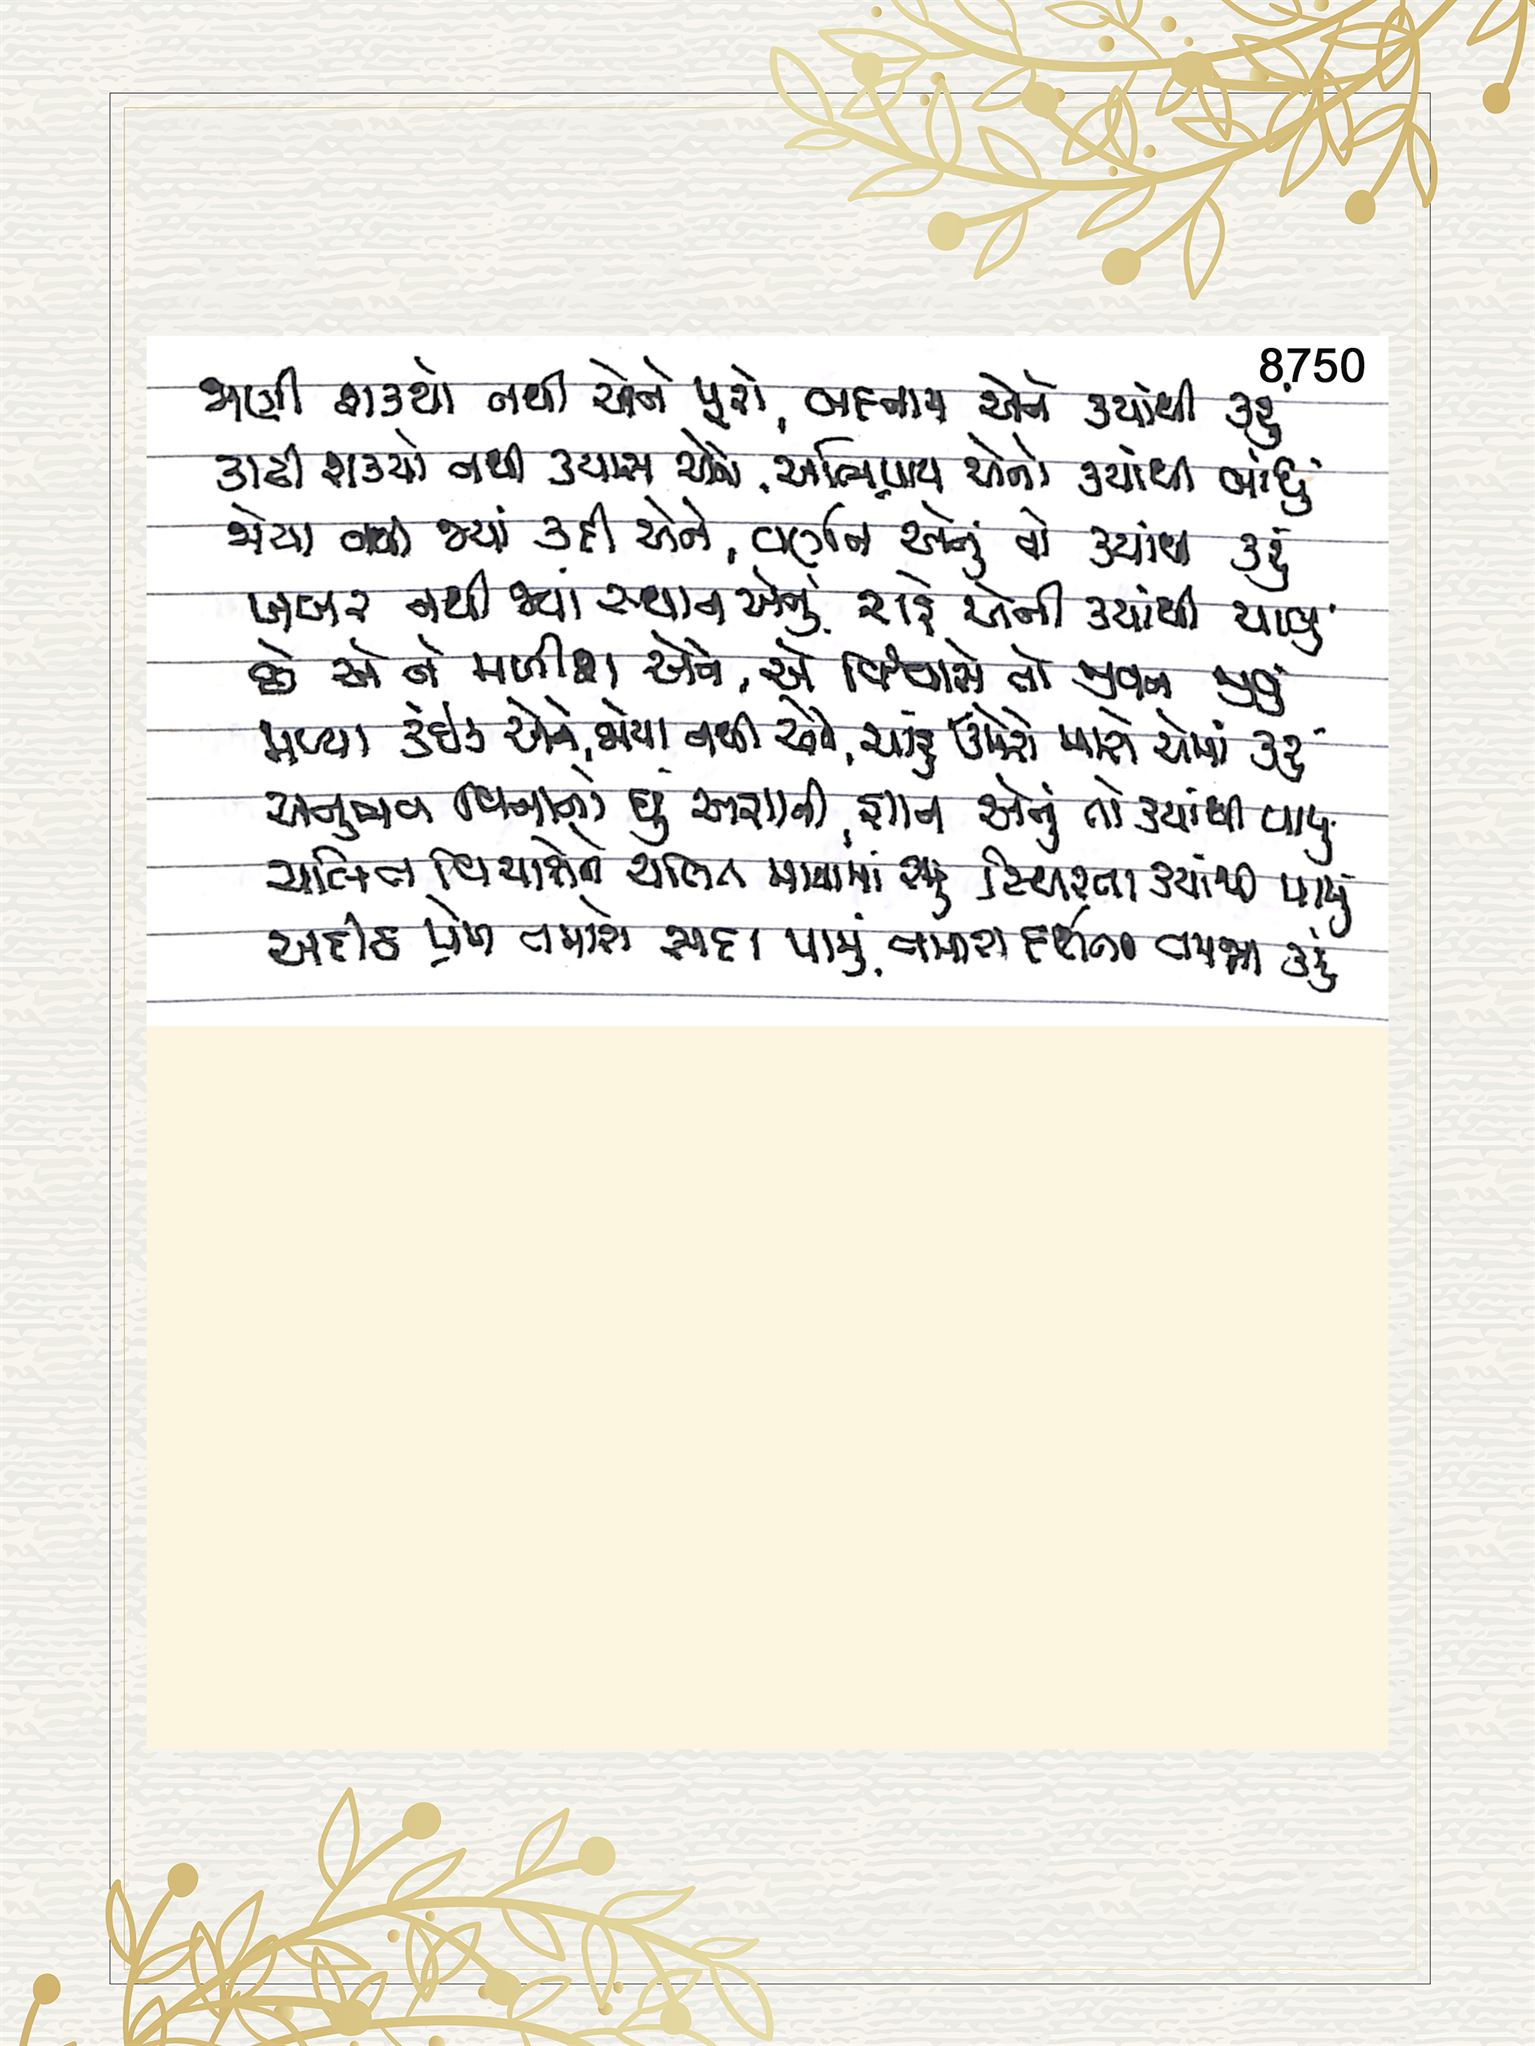 8750
જાણી શક્યો નથી એને પૂરો, બદનામ એને ક્યાંથી કરું
કાઢી શક્યો નથી ક્યાસ એનો, અભિપ્રાય એનો ક્યાંથી બાંધું
જોયા નથી જ્યાં કદી એને, વર્ણન એનું તો ક્યાંથી કરું
ખબર નથી જ્યાં સ્થાન એનું, રાહે એની ક્યાંથી ચાલું
છે એ ને મળીશ એને, એ વિશ્વાસે તો જીવન જીવું
મળ્યા કંઈક એને, જોયા નથી એણે, ઉમેરો મારો એમાં કરું
અનુભવ વિનાનો છું અજ્ઞાની, જ્ઞાન એનું તો ક્યાંથી પામું
ચલિત વિચારોને ચલિત ભાવોમાં રાચું સ્થિરતા ક્યાંથી પામું
અદીઠ પ્રેમ તમારો સદા પામું, તમારા દર્શન તમન્ના કરું